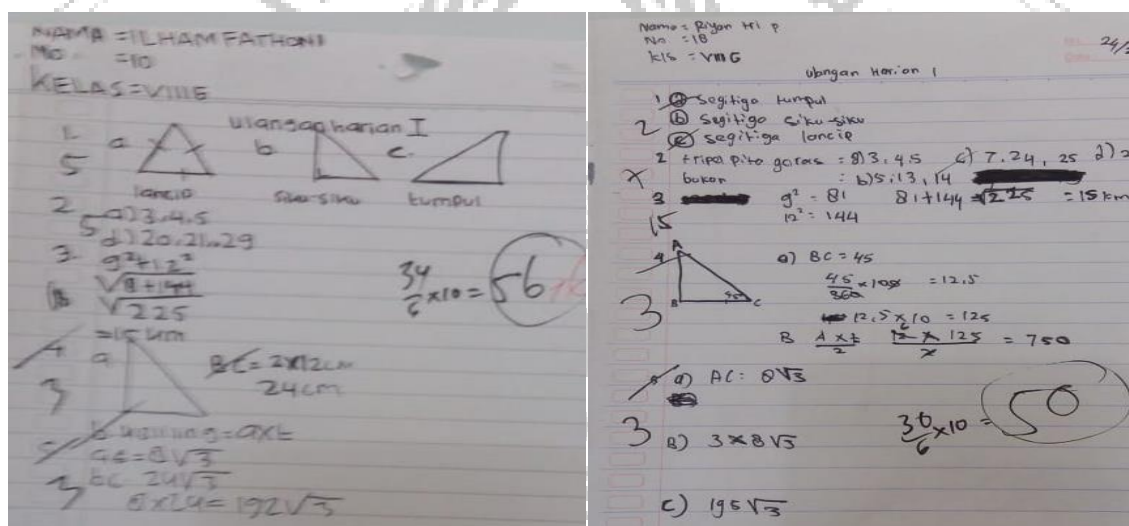 NAMA = ILHAM FATHONI
NO = 10
KELAS = VIII E
Ulangan harian I
1. a b. c.
5
lancip siku-siku tumpul
2. a) 3.4.5
5 d) 20.21.29
3. 9²+12²
√8+144
√225
= 15 km
34/6 ×10 = 56
4 a
BC = 2×12cm
24cm
3
b =a×t
5
= 8√3
BC 24√3
3
8×24 = 192√3
Nama = Riyan tri p
No = 18
kls = VIII G
24/
Ulangan Harian 1
1 a segitiga tumpul
b segitiga siku-siku
2
c segitiga lancip
2 tripel pita goras = a) 3.4.5 c) 7.24, 25 d) 2
bukan : b) 5.13, 14
3 9² = 81 81+144 √225 = 15 km
12² = 144
15
4 A
B
45
C
a) BC = 45
45/360 ×100 = 12.5
12.5×10 = 125
3
B A×t/2 = 750
5 a) AC = 8√3
3
B) 3×8√3
30/6 ×10 = 50
C) 195√3